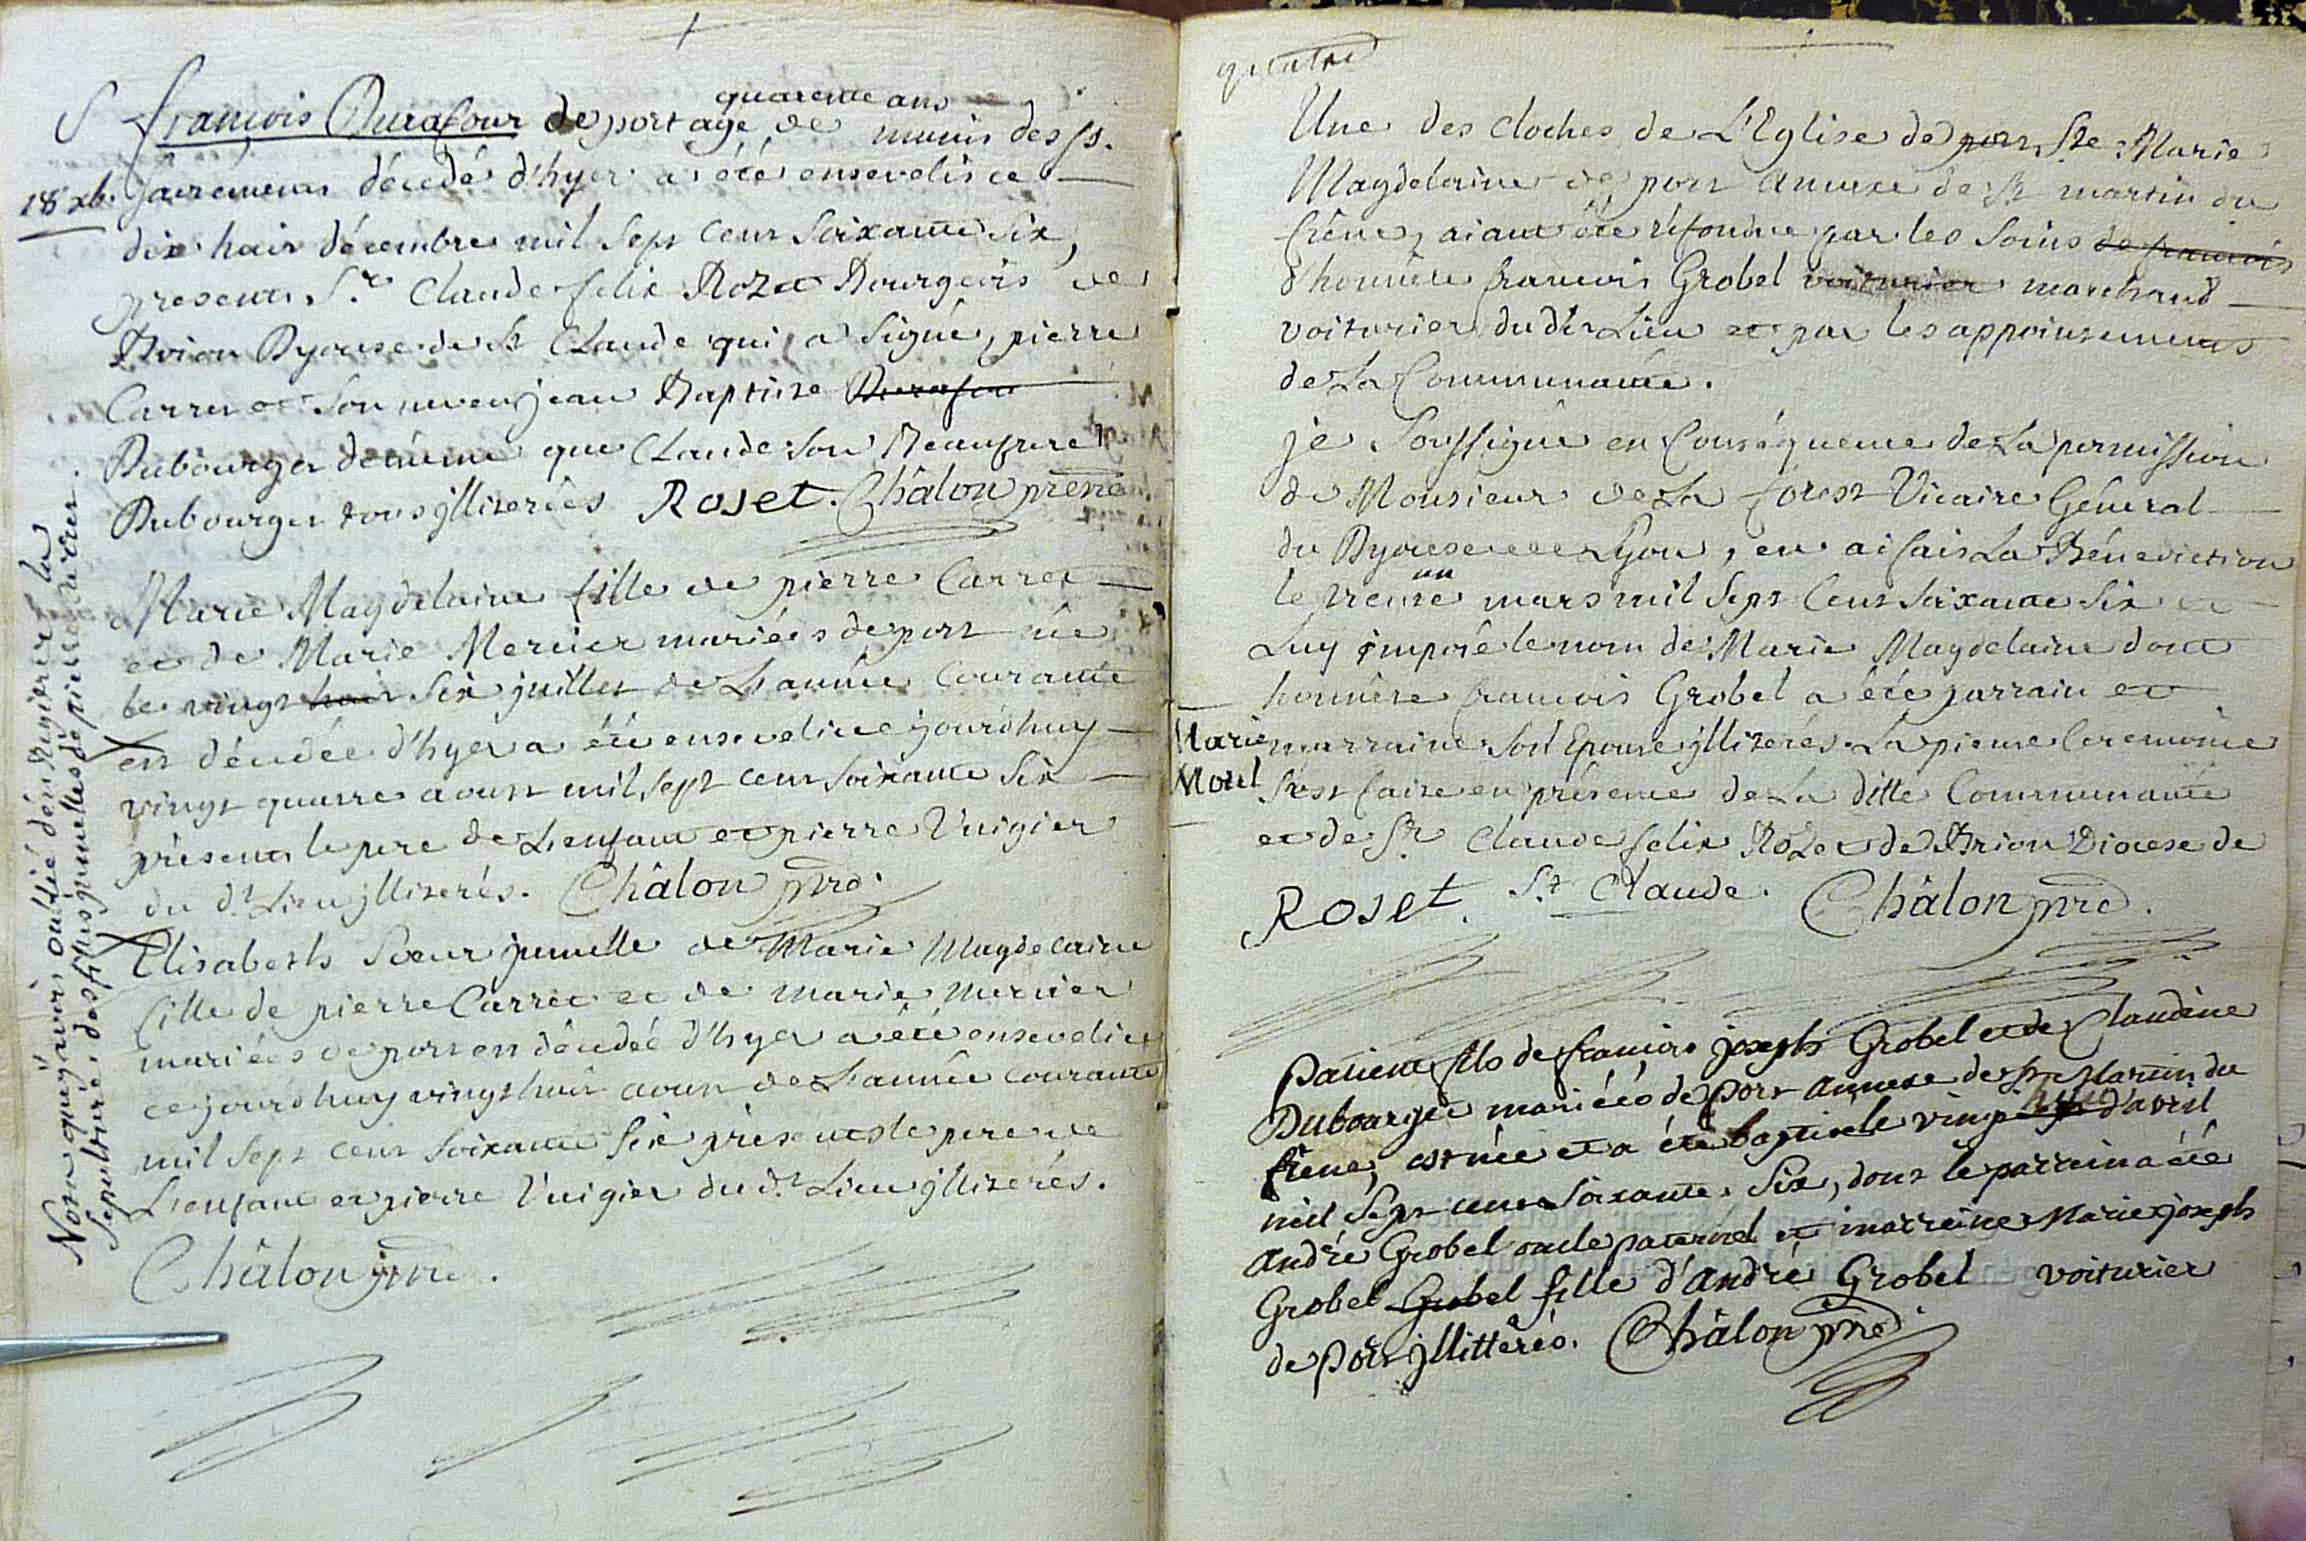 S françois Durafour de port agé de quarente ans munis des ss.
18 xb. sacremens décédé d'hyer a été enseveli ce
dix huit décembre mil sept cent soixante six,
present Sr. Claude felix Rozet Bourgeois de
Brion Dyocese de St Claude qui a signé, pierre
Carret et son neveu jean Baptiste Durafour
Dubourget de même que Claude son Beaufrere
Dubourget tous jlliterés Roset. Châlon prêtre
Marie Magdelaine fille de pierre Carret
et de Marie Mercier mariées de port née
le vingt huit six juillet de L'année Courante
est décédée d'hyer a été ensevelie ce jourd'huy
vingt quatre aoust mil sept cent soixante six
présent le pere de L'enfant et pierre Vuigier
du dt. Lieu jlliterés. Châlon ptre.
Elisabeth Soeur jumelle de Marie Magdelaine
fille de pierre Carret et de Marie Mercier
mariées de port est décédée d'hyer a été ensevelie
ce jourd'huy vingt huit aoust de L'année Courante
mil sept cent soixante six présents le pere de
L'enfant et pierre Vuigier du dt. Lieu jlliterés.
Châlon ptre.
Nota que j'avois oublié d'enregistrer la
sepulture des filles jumelles de pierre Carret.
quatre
Une des cloches de L'Eglise de port Ste Marie
Magdelaine de port annexe de St martin du
frêne, aiant été réfondue par les soins de francois
d'honnête francois Grobel voiturier marchand
voiturier du dit Lieu et par les appointements
de La Communauté.
je soussigné en Conséquence de La permission
de Monsieur de La forest Vicaire Général
du Dyocese de Lyon, en ai fait La Bénédiction
le trente un mars mil sept Cent soixante six et
Luy imposé le nom de Marie Magdelaine dont
honnête francois Grobel a été parrain et
Marie Morel marraine son Epouse jlliterés. La pieuse Ceremonie
s'est faite en présence de La ditte Communauté
et de Sr Claude felix Rozet de Brion Diocese de
Roset. St. Claude. Châlon ptre.
Patient fils de francois joseph Grobel et de Claudine
Dubourget mariéés de port annexe de St Martin du
frêne, est née et a été baptisé le vingt d'avril
mil sept cent soixante six, dont le parrein a été
andré Grobel oncle paternel et marreine Marie joseph
Grobel Grobel fille d'andré Grobel voiturier
de port jllittérés. Châlon ptre.